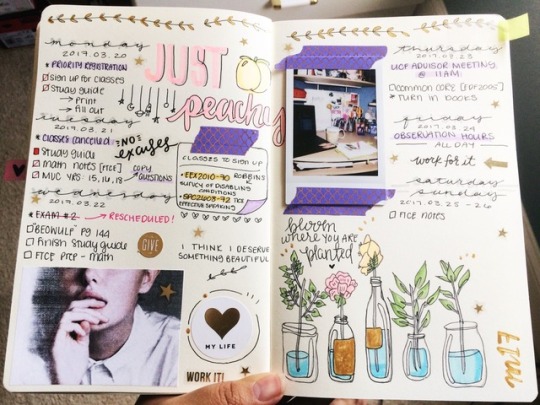 monday
2017.03.20
* PRIORITY REGISTRATION
sign up for classes
study guide
→ Print
→ fill out
tuesday
2017.03.21
* classes cancelled
Study guide
math notes [FTCE]
MUC VRS 15, 16, 18
COPY
QUESTIONS
wednesday
2017.03.22
* EXAM #2 → RESCHEDULED!
"BEOWULF" PG 144
finish study guide
FTCE prep - math
GIVE
JUST
peachy
*NO*
excuses
CLASSES TO SIGN UP
SURVEY OF DISABLING
CONDITIONS
EFFECTIVE SPEAKING
I THINK I DESERVE
SOMETHING BEAUTIFUL
MY LIFE
WORK IT!
thursday
2017.03.23
UCF ADVISOR MEETING
@ 11AM
common core
* turn in books
friday
2017.03.24
OBSERVATION HOURS
ALL DAY
work for it
saturday
sunday
2017.03.25 - 26
FTCE NOTES
bloom
where YOU ARE
planted